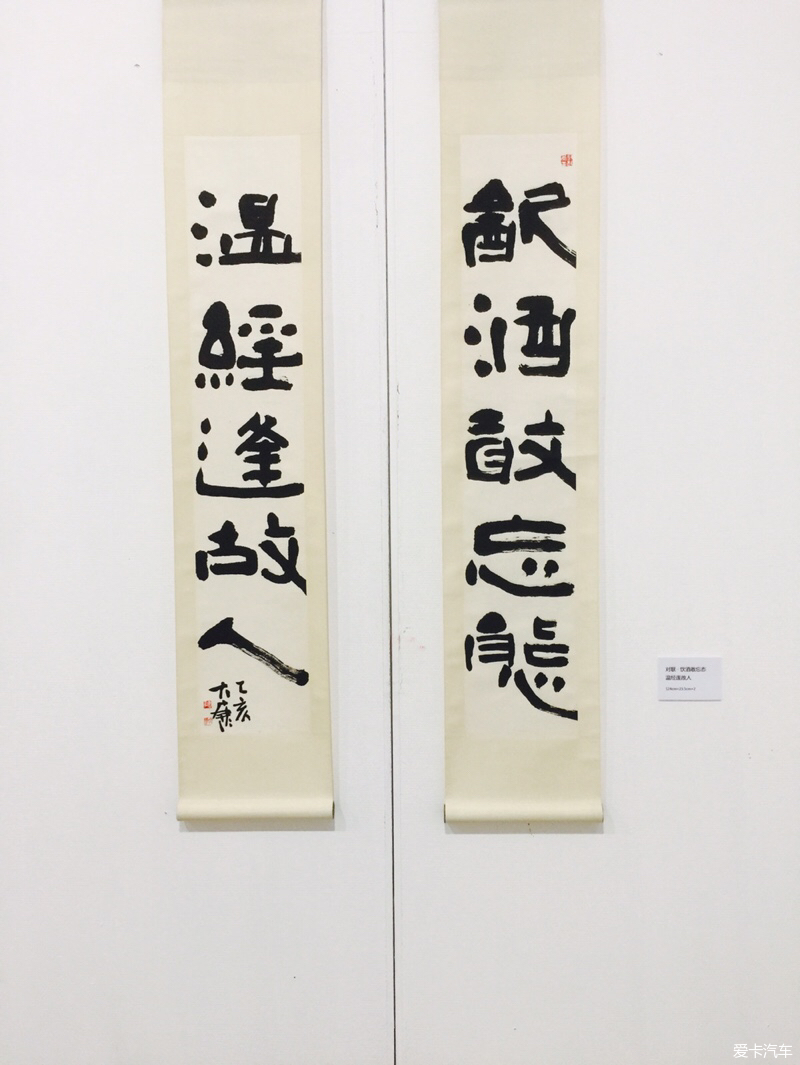 㱃酒敢忘態
温經逢故人
乙亥
大康
对联·饮酒敢忘态
温经逢故人
爱卡汽车